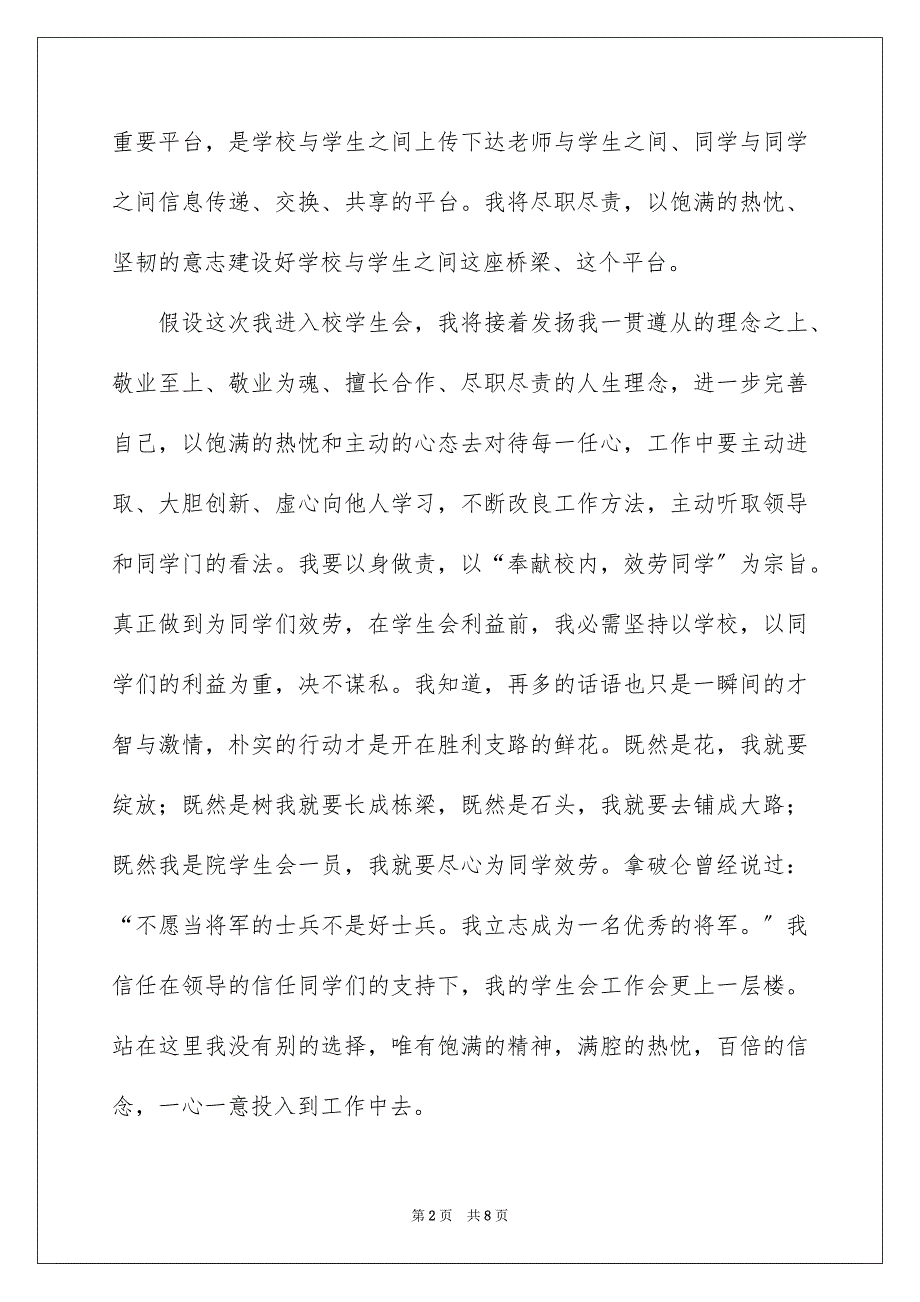 重要平台，是学校与学生之间上传下达老师与学生之间、同学与同学
之间信息传递、交换、共享的平台。我将尽职尽责，以饱满的热忱、
坚韧的意志建设好学校与学生之间这座桥梁、这个平台。
假设这次我进入校学生会，我将接着发扬我一贯遵从的理念之上、
敬业至上、敬业为魂、擅长合作、尽职尽责的人生理念，进一步完善
自己，以饱满的热忱和主动的心态去对待每一任心，工作中要主动进
取、大胆创新、虚心向他人学习，不断改良工作方法，主动听取领导
和同学门的看法。我要以身做责，以“奉献校内，效劳同学〞为宗旨。
真正做到为同学们效劳，在学生会利益前，我必需坚持以学校，以同
学们的利益为重，决不谋私。我知道，再多的话语也只是一瞬间的才
智与激情，朴实的行动才是开在胜利支路的鲜花。既然是花，我就要
绽放；既然是树我就要长成栋梁，既然是石头，我就要去铺成大路；
既然我是院学生会一员，我就要尽心为同学效劳。拿破仑曾经说过：
“不愿当将军的士兵不是好士兵。我立志成为一名优秀的将军。〞我
信任在领导的信任同学们的支持下，我的学生会工作会更上一层楼。
站在这里我没有别的选择，唯有饱满的精神，满腔的热忱，百倍的信
念，一心一意投入到工作中去。
第 2 页 共 8 页